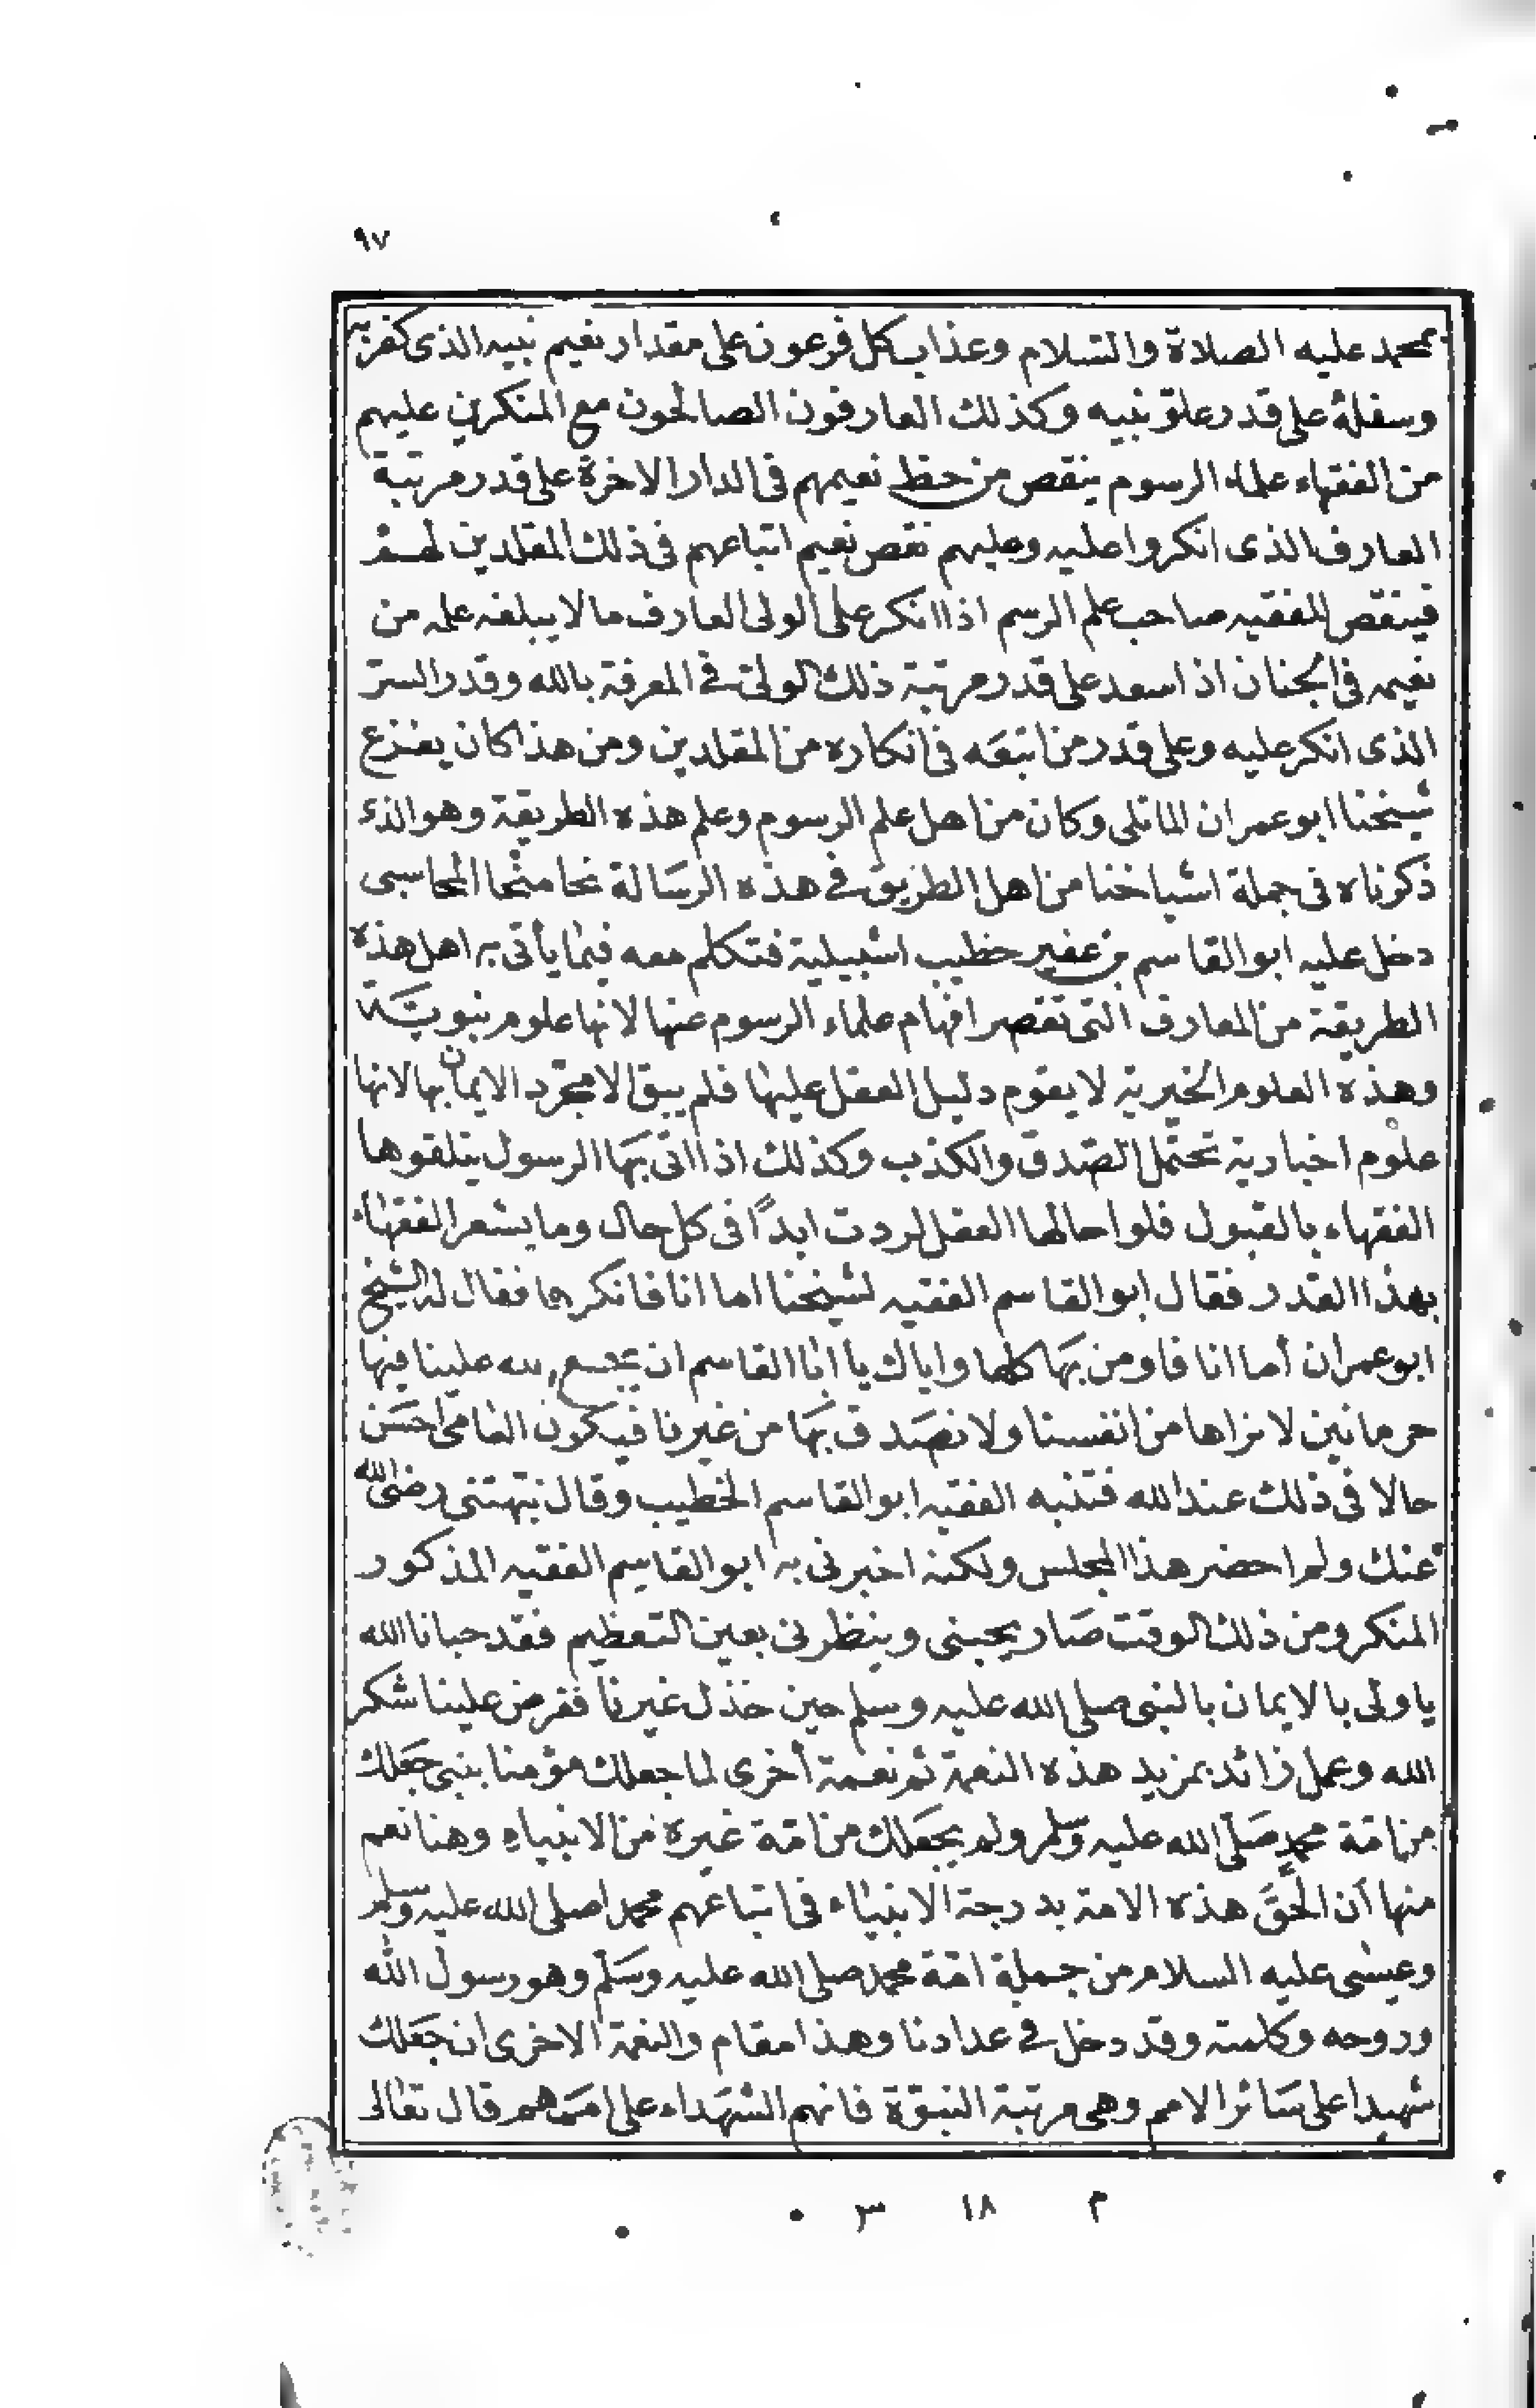 ٩٧
بمحمد عليه الصلاة والسلام وعذاب كل فرعون على مقدار نعيم نبيه الذى كفر به
وسفله على قدر علوّ نبيه وكذلك العارفون الصالحون مع المنكرين عليهم
من الفقهاء علماء الرسوم ينقص من حظ نعيمهم فى الدار الاخرة على قدر مرتبة
العارف الذى انكروا عليه وعليهم نقص نعيم اتباعهم فى ذلك المقلدين لهم
فينقص للفقيه صاحب علم الرسم اذا انكر على الولى العارف ما لا يبلغه علمه من
نعيمه فى الجنان اذ اسعد على قدر مرتبة ذلك الولىّ فى المعرفة بالله وقدر السرّ
الذى انكر عليه وعلى قدر من اتبعَه فى انكاره من المقلدين ومن هذا كان يفزع
شيخنا ابو عمران المارتلى وكان من اهل علم الرسوم وعلم هذه الطريقة وهو الذى
ذكرناه فى جملة اشياخنا من اهل الطريق فى هذه الرسَالة نحا منحا المحاسبى
دخل عليه ابو القاسم بن عفير خطيب اشبيلية فتكلم معه فيما يأتى به اهل هذه
الطريقة من المعارف التى تقصر افهام علماء الرسوم عنها لانها علوم نبويَّة
وهذه العلوم الخبرية لا يقوم دليل العقل عليها فلم يبق الا مجرّد الايمان بها لانها
علوم اخبارية تحتمل الصّدق والكذب وكذلك اذا اتى بهَا الرسول يتلقوها
الفقهاء بالقبول فلو احالها العقل لردت ابدًا فى كل حال وما يشعر الفقهاء
بهذا القدر فقال ابو القاسم الفقيه لشيخنا اما انا فانكرها فقال له الشيخ
ابو عمران أما انا فاومن بهَا كلها واياك يا ابا القاسم ان يجمع الله علينا فيها
حرمانين لا نراها من انفسنا ولا نصَدق بهَا من غيرنا فيكون العامى احسَن
حالا فى ذلك عند الله فتنبه الفقيه ابو القاسم الخطيب وقال نبهتنى رضى الله
عنك ولم احضر هذا المجلس ولكنه اخبرنى به ابو القاسم الفقيه المذكور
المنكر ومن ذلك الوقت صَار يحبنى وينظرنى بعين التعظيم فقد حبانا الله
يا ولى بالايمان بالنبى صلى الله عليه وسلم حين خذل غيرنا ففرض علينا شكر
الله وعمل زائد بمزيد هذه النعمة ثم نعمة أخرى لما جعلك مؤمنا بنبى جعَلك
من امّة محمدٍ صَلّى الله عليه وسلم ولم يجعَلك من امّة غيره من الانبياءِ وهنا نعم
منها أن الحَقَ هذه الامة بدرجة الانبياء فى اتباعهم محمدا صلى الله عليه وسلم
وعيسى عليه السلام من جملة امّة محمد صلى الله عليه وسَلّم وهو رسول الله
وروحه وكلمته وقد دخل فى عدادنا وهذا مقام والنعمة الاخرى ان جعَلك
شهيدا على سَائر الامم وهى مرتبة النبوّة فانهم الشهَداء على اممَهم قال تعَالى
م ١٨ س